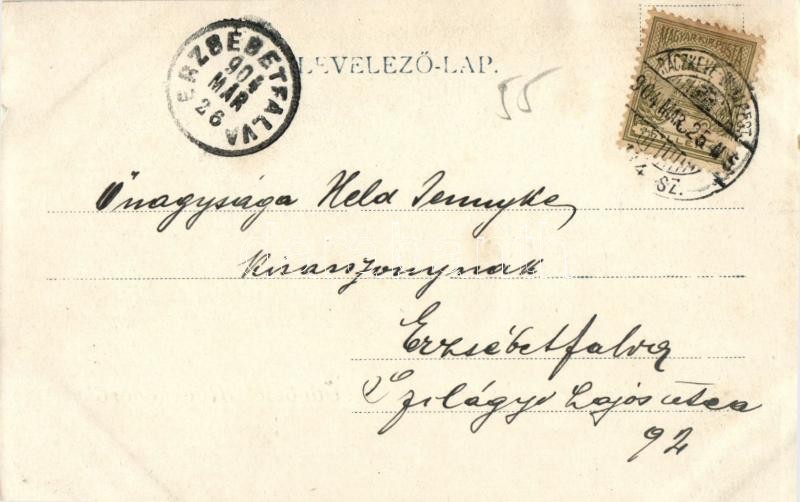 ERZSÉBETFALVA
904
MÁR
26
LEVELEZŐ-LAP.
55
MAGYAR KIR. POSTA
RÁCZKEVE-BUDAPEST
904 MÁR. 25
SZ.
Őnagysága Held Jennyke
kisasszonynak
Erzsébetfalva
Szilágyi Lajos útca
92